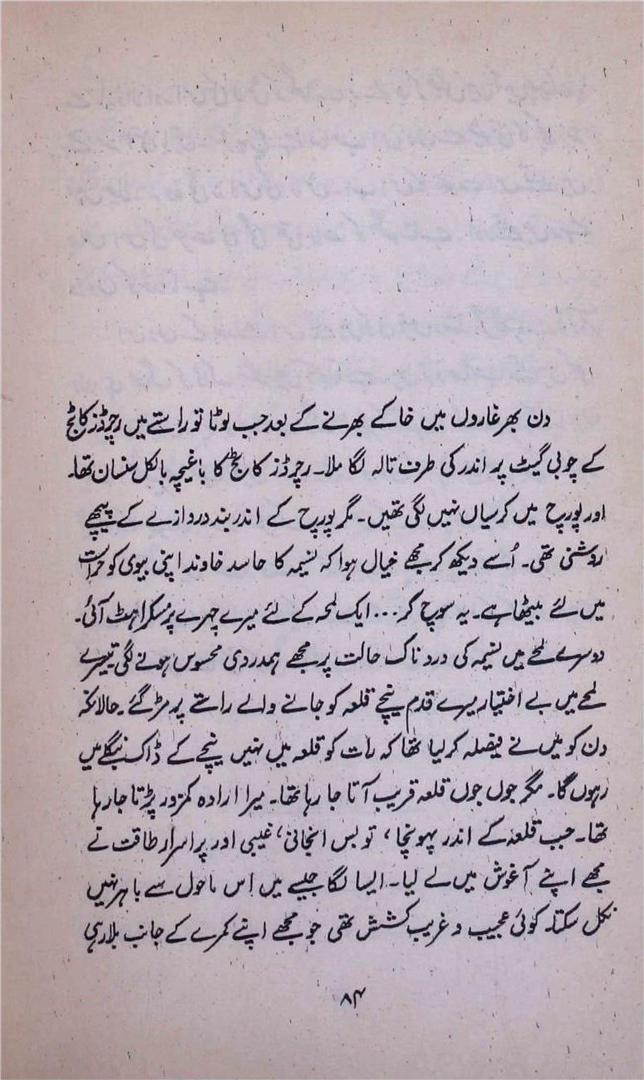 دن بھر غاروں میں خاکے بھرنے کے بعد جب لوٹا تو راستے میں رچرڈز کاٹج
کے چوبی گیٹ پر اندر کی طرف تالہ لگا ملا۔ رچرڈز کاٹج کا باغیچہ بالکل سنسان تھا۔
اور پورچ میں کرسیاں نہیں لگی تھیں۔ مگر پورچ کے اندر بند دروازے کے پیچھے
روشنی تھی۔ اُسے دیکھ کر مجھے خیال ہوا کہ نسیمہ کا حاسد خاوند اپنی بیوی کو حراست
میں لئے بیٹھا ہے۔ یہ سوچ کر... ایک لمحہ کے لئے میرے چہرے پر مُسکراہٹ آئی۔
دوسرے لمحے میں نسیمہ کی دردناک حالت پر مجھے ہمدردی محسوس ہونے لگی تیسرے
لمحے میں بے اختیار میرے قدم نیچے قلعہ کو جانے والے راستے پر مڑ گئے۔ حالانکہ
دن کو میں نے فیصلہ کر لیا تھا کہ رات کو قلعہ میں نہیں نیچے کے ڈاک بنگلے میں
رہوں گا۔ مگر جوں جوں قلعہ قریب آتا جا رہا تھا۔ میرا ارادہ کمزور پڑتا جا رہا
تھا۔ جب قلعہ کے اندر پہونچا، تو بس انجانی، غیبی اور پراسرار طاقت نے
مجھے اپنے آغوش میں لے لیا۔ ایسا لگا جیسے میں اِس ماحول سے باہر نہیں
نکل سکتا۔ کوئی عجیب و غریب کشش تھی جو مجھے اپنے کمرے کے جانب بلا رہی
۸۴